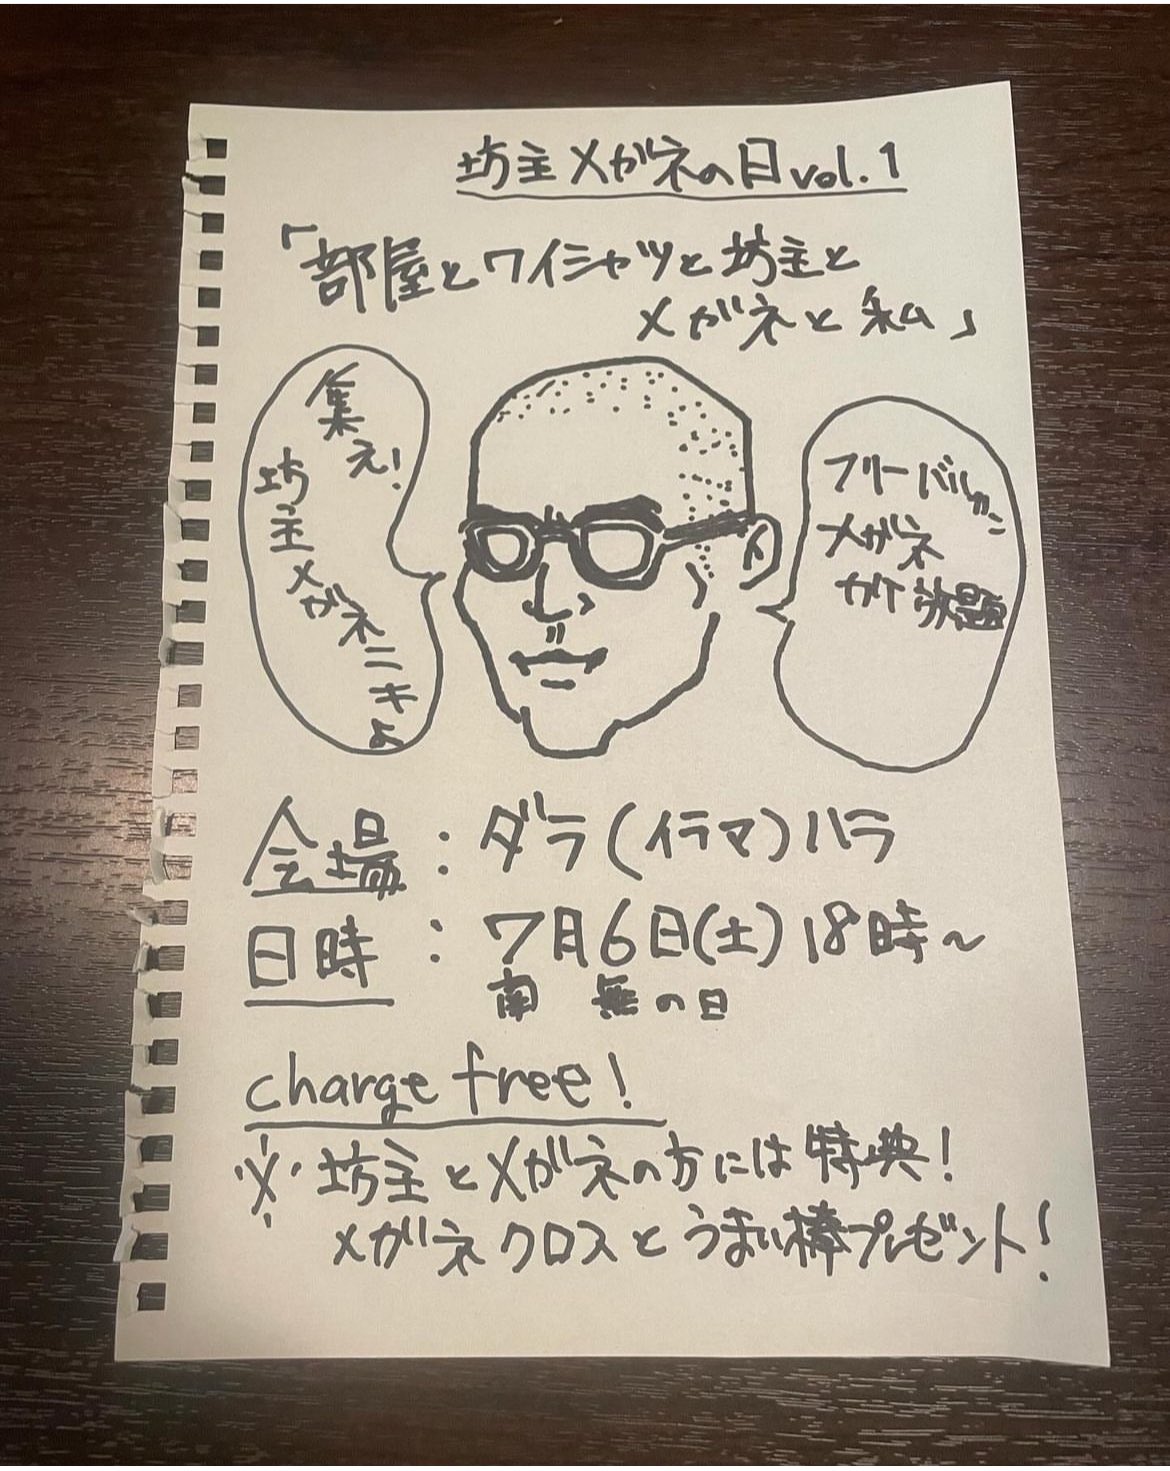 坊主メガネの日vol.1
「部屋とワイシャツと坊主と
メガネと私」
集え!
坊主メガネニキよ
フリーバリカン
メガネ
ガケ放題
会場:ダラ(イラマ)ハラ
日時:7月6日(土)18時~
南無の日
charge free!
※坊主とメガネの方には特典!
メガネクロスとうまい棒プレゼント!